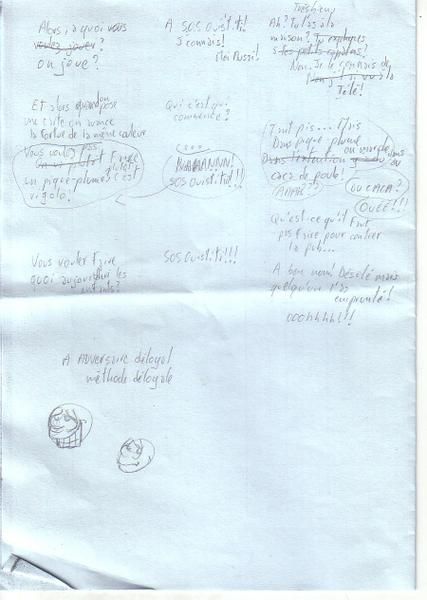 Alors, à quoi vous
voulez jouer?
on joue?
A SOS Ouistiti!
J connais!
Moi Aussi!
Très bien,
Ah? Tu l'as à la
maison? Tu expliques
Non. Je le connais de
Télé!
Et alors quand on pose
une carte on avance
la tortue de la même couleur
Qui c'est qui
commence?
Vous voulez pas
Faire
plutôt
un pique-plume? C'est
rigolo!
...
NAAAANNN!
SOS Ouistiti!!
Tant pis... Mais
Dans pique plume
ou
caca de poule!
AAAH??
OU CACA?
OUÉÉ!!!
Qu'est-ce qu'il Faut
pas Faire pour contrer
la pub...
Vous voulez Faire
quoi aujourd'hui les
enfants?
SOS Ouistiti!!!
A ben non! Désolé mais
quelqu'un l'a
emprunté!
OOOhhhh!!!
A ADVERSAIRE déloyal
méthode déloyale